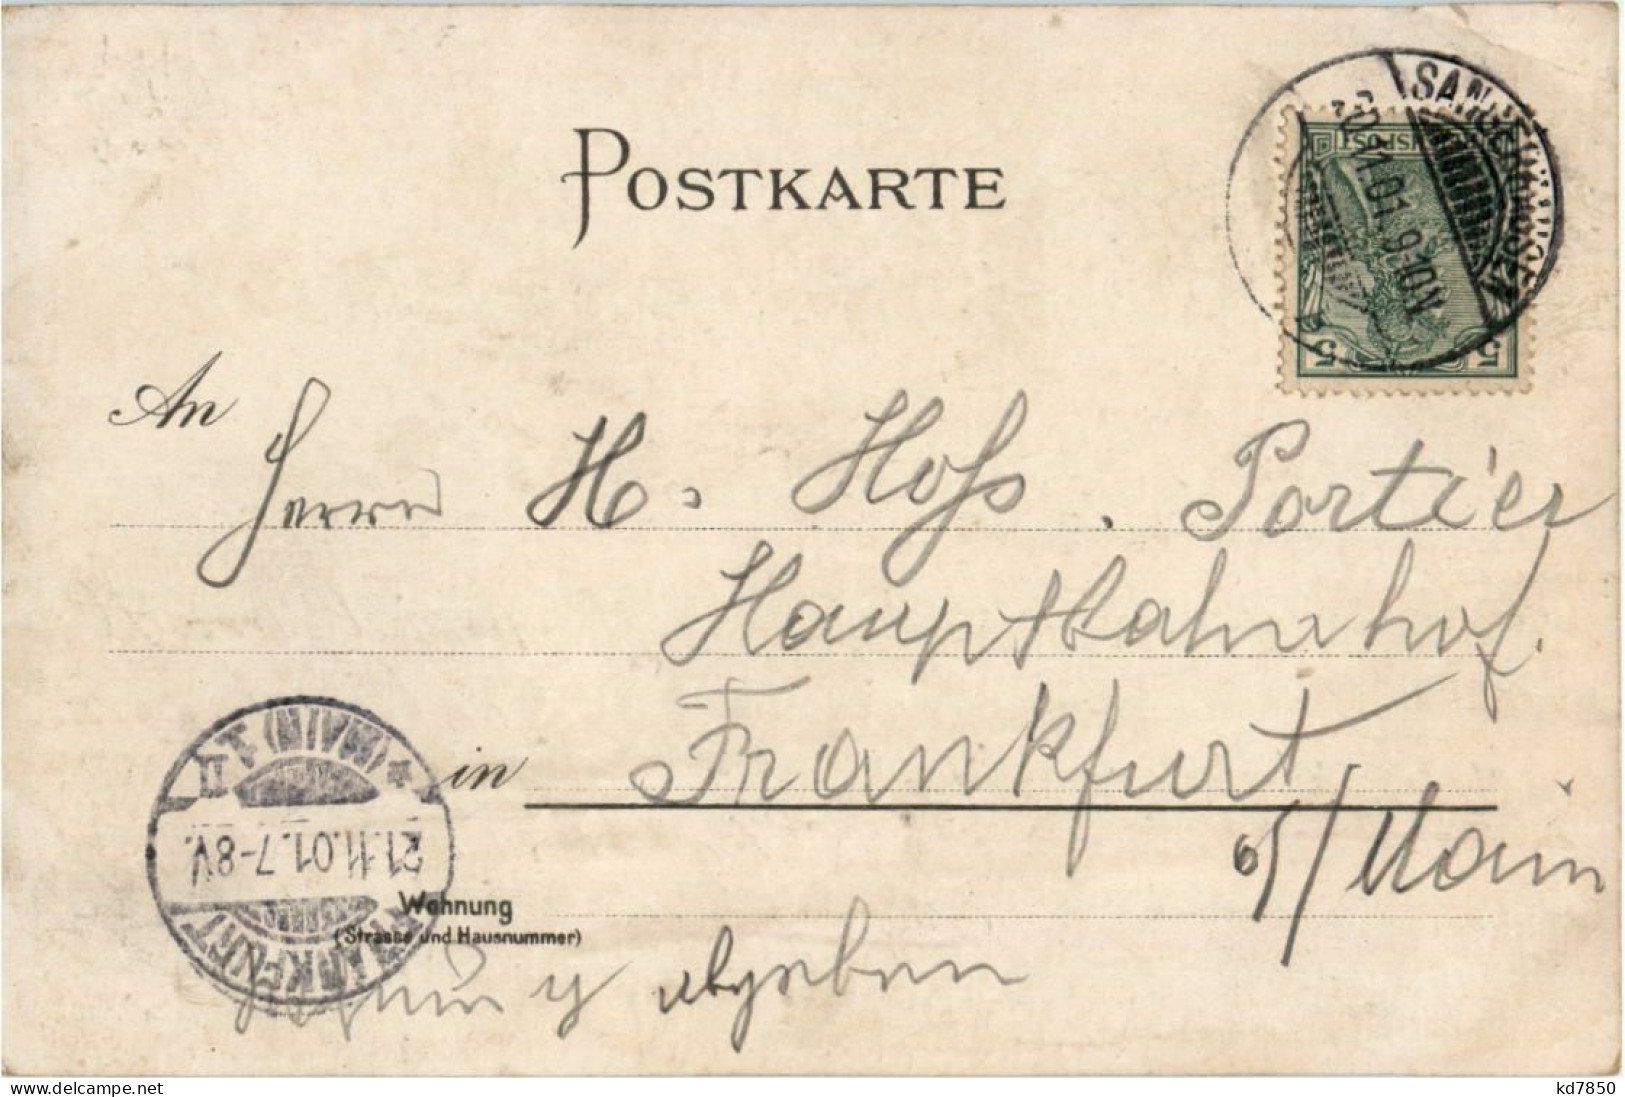 POSTKARTE
SANGERHAUSEN
20.11.01. 9-10N
REICHSPOST
5 5
An
Herrn H. Hoß. Portier
Hauptbahnhof.
in Frankfurt
a/Main
FRANKFURT (MAIN) * II
21.11.01. 7-8V.
Wohnung
(Strasse und Hausnummer)
abgeben
www.delcampe.net
kd7850